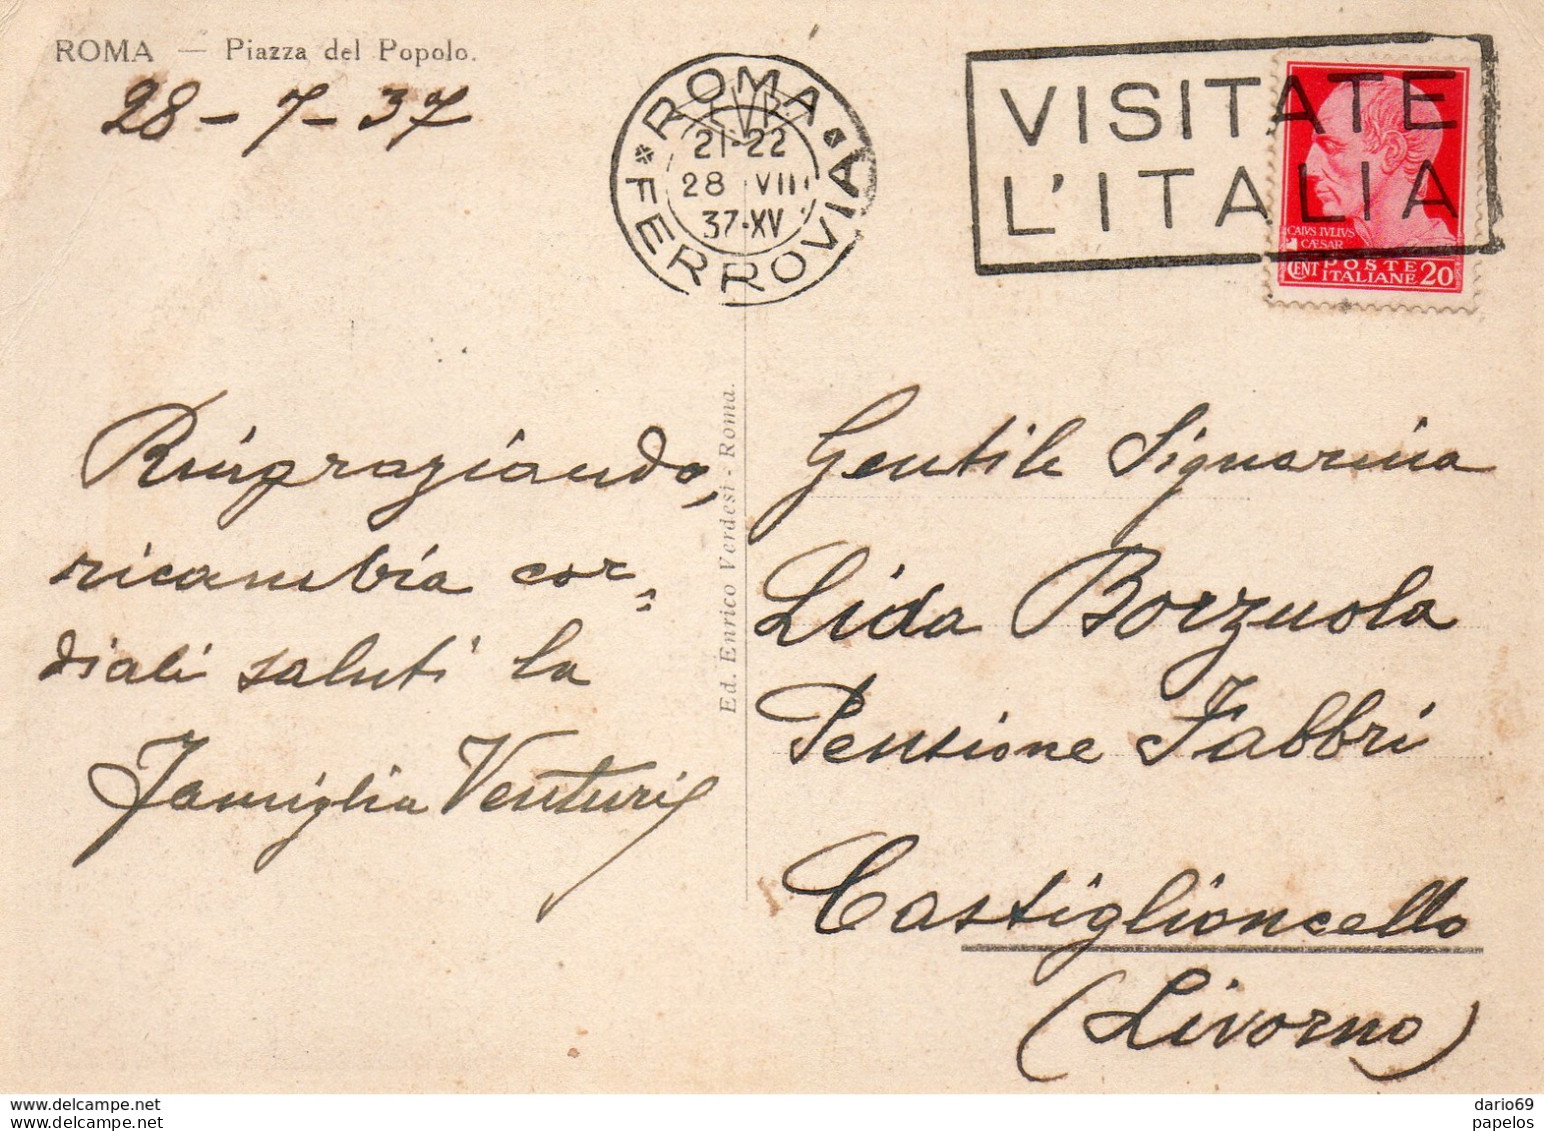 ROMA — Piazza del Popolo.
28-7-37
ROMA
21-22
28 VII
37-XV
FERROVIA
VISITATE
L'ITALIA
CAIVS IVLIVS
CÆSAR
POSTE
CENT ITALIANE 20
Ringraziando,
ricambia cor=
diali saluti la
Famiglia Venturi
Ed. Enrico Verdesi - Roma.
Gentile Signorina
Lida Borzuola
Pensione Fabbri
Castiglioncello
(Livorno)
dario69
papelos
delcampe.net